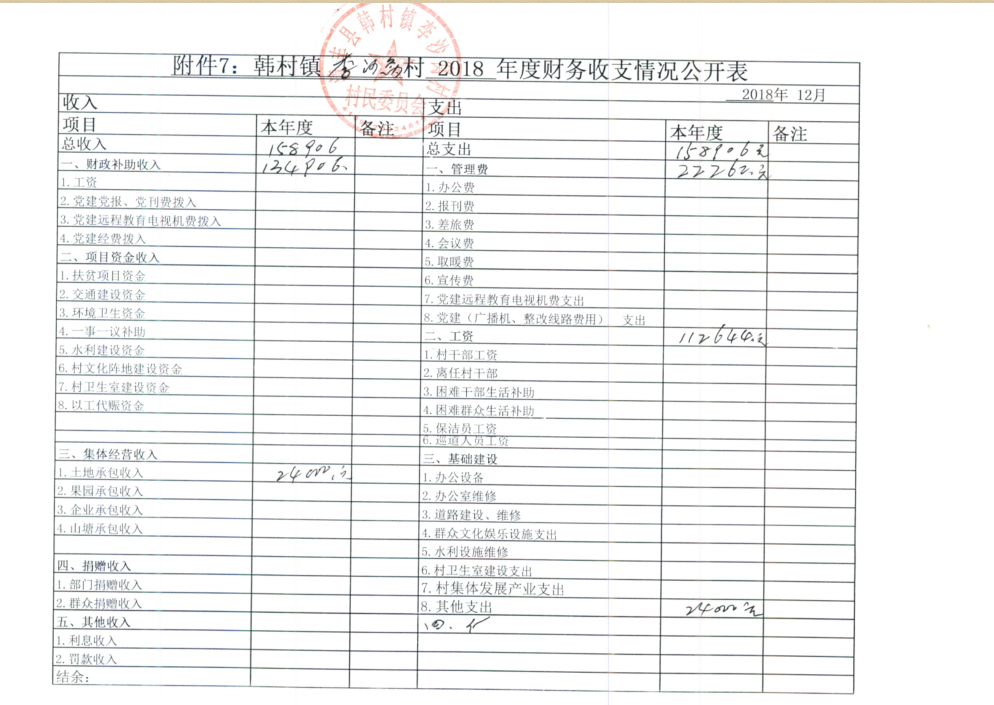 附件7：韩村镇 李沙沟村 2018 年度财务收支情况公开表
2018年 12月
收入 支出
项目 本年度 备注 项目 本年度 备注
总收入 158906 总支出 158906元
一、财政补助收入 134906. 一、管理费 22262.元
1.工资 1.办公费
2.党建党报、党刊费拨入 2.报刊费
3.党建远程教育电视机费拨入 3.差旅费
4.党建经费拨入 4.会议费
二、项目资金收入 5.取暖费
1.扶贫项目资金 6.宣传费
2.交通建设资金 7.党建远程教育电视机费支出
3.环境卫生资金 8.党建（广播机、整改线路费用） 支出
4.一事一议补助 二、工资 112644.元
5.水利建设资金 1.村干部工资
6.村文化阵地建设资金 2.离任村干部
7.村卫生室建设资金 3.困难干部生活补助
8.以工代赈资金 4.困难群众生活补助
5.保洁员工资
6.巡道人员工资
三、集体经营收入 三、基础建设
1.土地承包收入 24000.元 1.办公设备
2.果园承包收入 2.办公室维修
3.企业承包收入 3.道路建设、维修
4.山塘承包收入 4.群众文化娱乐设施支出
5.水利设施维修
四、捐赠收入 6.村卫生室建设支出
1.部门捐赠收入 7.村集体发展产业支出
2.群众捐赠收入 8.其他支出 24000元
五、其他收入
1.利息收入
2.罚款收入
结余：
村民委员会